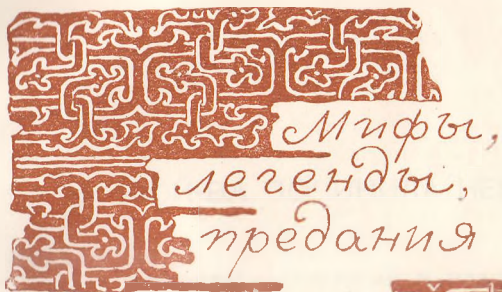 Мифы,
легенды,
предания